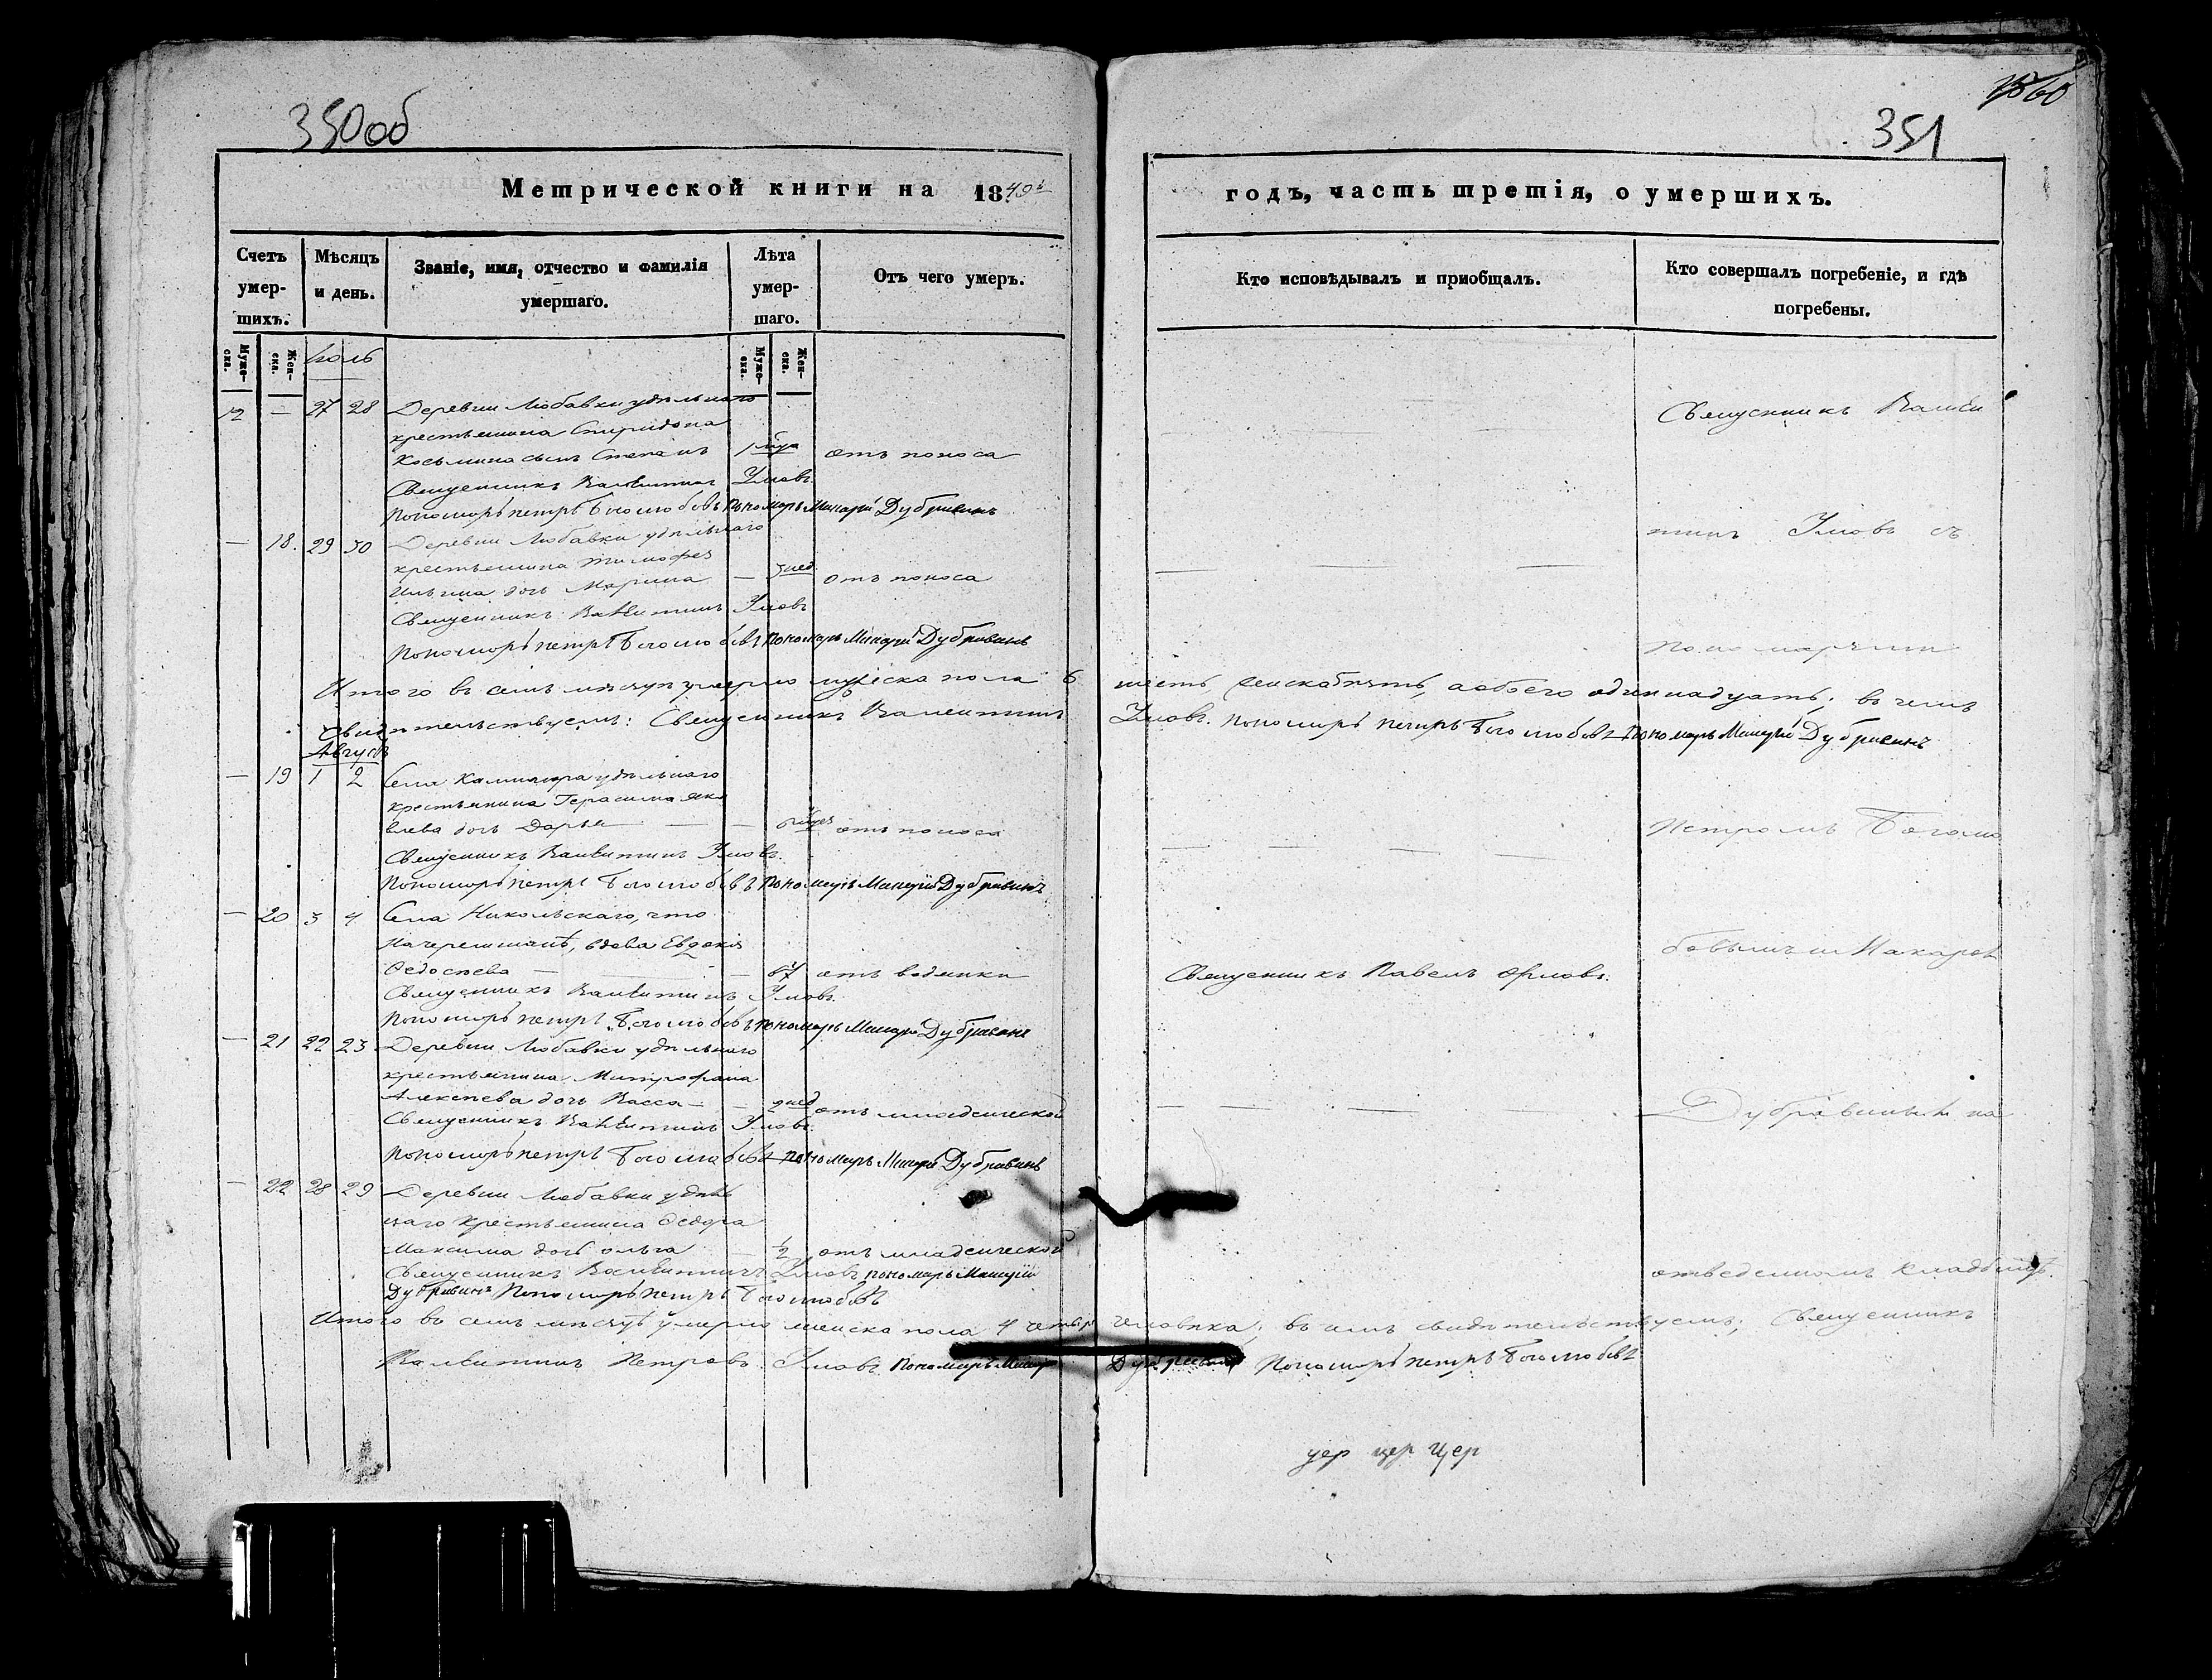 350об
351
Метрической книги на 1840й
годъ, часть третія, о умершихъ.
Счетъ умер-шихъ.
Мѣсяцъ и день.
Званіе, имя, отчество и фамилія умершаго.
Лѣта умер-шаго.
Отъ чего умеръ.
Кто исповѣдывалъ и пріобщалъ.
Кто совершалъ погребеніе, и гдѣ погребены.
Муже-ска.
Жен-ска.
Муже-ска.
Жен-ска.
Іюль
12 — 27 28 Деревни Любавки удѣльнаго
крестьянина Спиридона
Косьмина сынъ Степанъ 1 отъ поноса
Священникъ Валентинъ Умовъ
Пономорь петръ Боголюбовъ Пономарь Макарій Дубравинъ
— 18. 29 30 Деревни Любавки удѣльнаго
крестьянина Тимофея
Ильина дочь Марина — 3 нед отъ поноса
Священникъ Валентинъ Умовъ
Пономорь петръ Боголюбовъ Пономарь Макарій Дубравинъ
Итого въ семъ мѣсяцѣ умерло мужеска пола 6
шесть, женска пять, а обоего одиннадцать; въ чемъ
свидѣтельствуемъ: Священникъ Валентинъ
Умовъ. Пономорь петръ Боголюбовъ Пономарь Макарій Дубравинъ
Августъ
— 19 1 2 Села удѣльнаго
крестьянина Герасима Яко
влева дочь Дарья — — отъ поноса
Священникъ Валентинъ Умовъ.
Пономорь петръ Боголюбовъ Пономарь Макарій Дубравинъ
— 20 3 4 Села Никольскаго, что
Начеремшанѣ, вдова Евдокія
Федосѣева — — 67 отъ водянки
Священникъ Павелъ Орловъ.
Священникъ Валентинъ Умовъ.
Пономорь петръ Боголюбовъ Пономарь Макарій Дубравинъ
— 21 22 23 Деревни Любавки удѣльнаго
крестьянина Митрофана
Алексѣева дочь Васса — — 2 нед отъ младенческой
Священникъ Валентинъ Умовъ.
Пономорь петръ Боголюбовъ Пономарь Макарій Дубравинъ
— 22 28 29 Деревни Любавки удѣль
наго крестьянина Федора
Максима дочь Ольга — ½ отъ младенческой
Священникъ Валентинъ Умовъ Пономарь Макарій
Дубравинъ Пономорь петръ Боголюбовъ
Итого въ семъ мѣсяцѣ умерло женска пола 4 четыре человѣка; въ чемъ свидѣтельствуемъ; Священникъ
Валентинъ Петровъ Умовъ Пономарь Макарій Дубравинъ Пономорь петръ Боголюбовъ
Священникъ Вален
тинъ Умовъ съ
Пономарями
Петромъ Боголю
бовымъ и Макаріемъ
Дубравинымъ на
отведенномъ кладбищѣ.
цер цер Цер